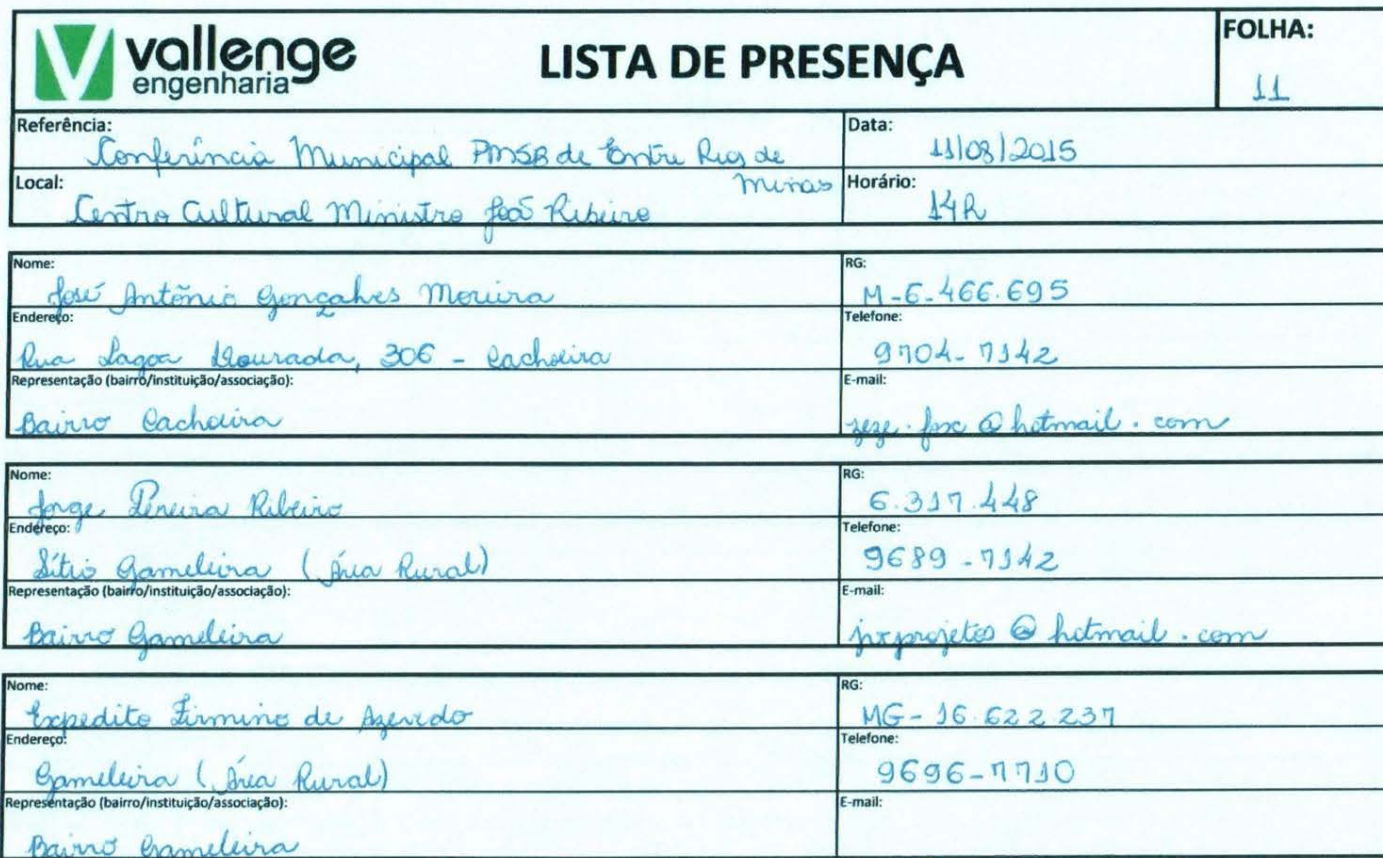 vallenge
engenharia
LISTA DE PRESENÇA
FOLHA:
11
Referência:
Conferência Municipal PMSB de Entre Rios de
Minas
Data:
11/08/2015
Local:
Centro Cultural Ministro João Ribeiro
Horário:
14h
Nome:
José Antônio Gonçalves Moreira
RG:
M-6.466.695
Endereço:
Rua Lagoa Dourada, 306 - Cachoeira
Telefone:
9704-7142
Representação (bairro/instituição/associação):
Bairro Cachoeira
E-mail:
@hotmail.com
Nome:
Jorge Pereira Ribeiro
RG:
6.317.448
Endereço:
Sítio Gameleira (Área Rural)
Telefone:
9689-7142
Representação (bairro/instituição/associação):
Bairro Gameleira
E-mail:
jrprojetos@hotmail.com
Nome:
Expedito Firmino de Azevedo
RG:
MG-16.622.237
Endereço:
Gameleira (Área Rural)
Telefone:
9696-7710
Representação (bairro/instituição/associação):
Bairro Gameleira
E-mail: